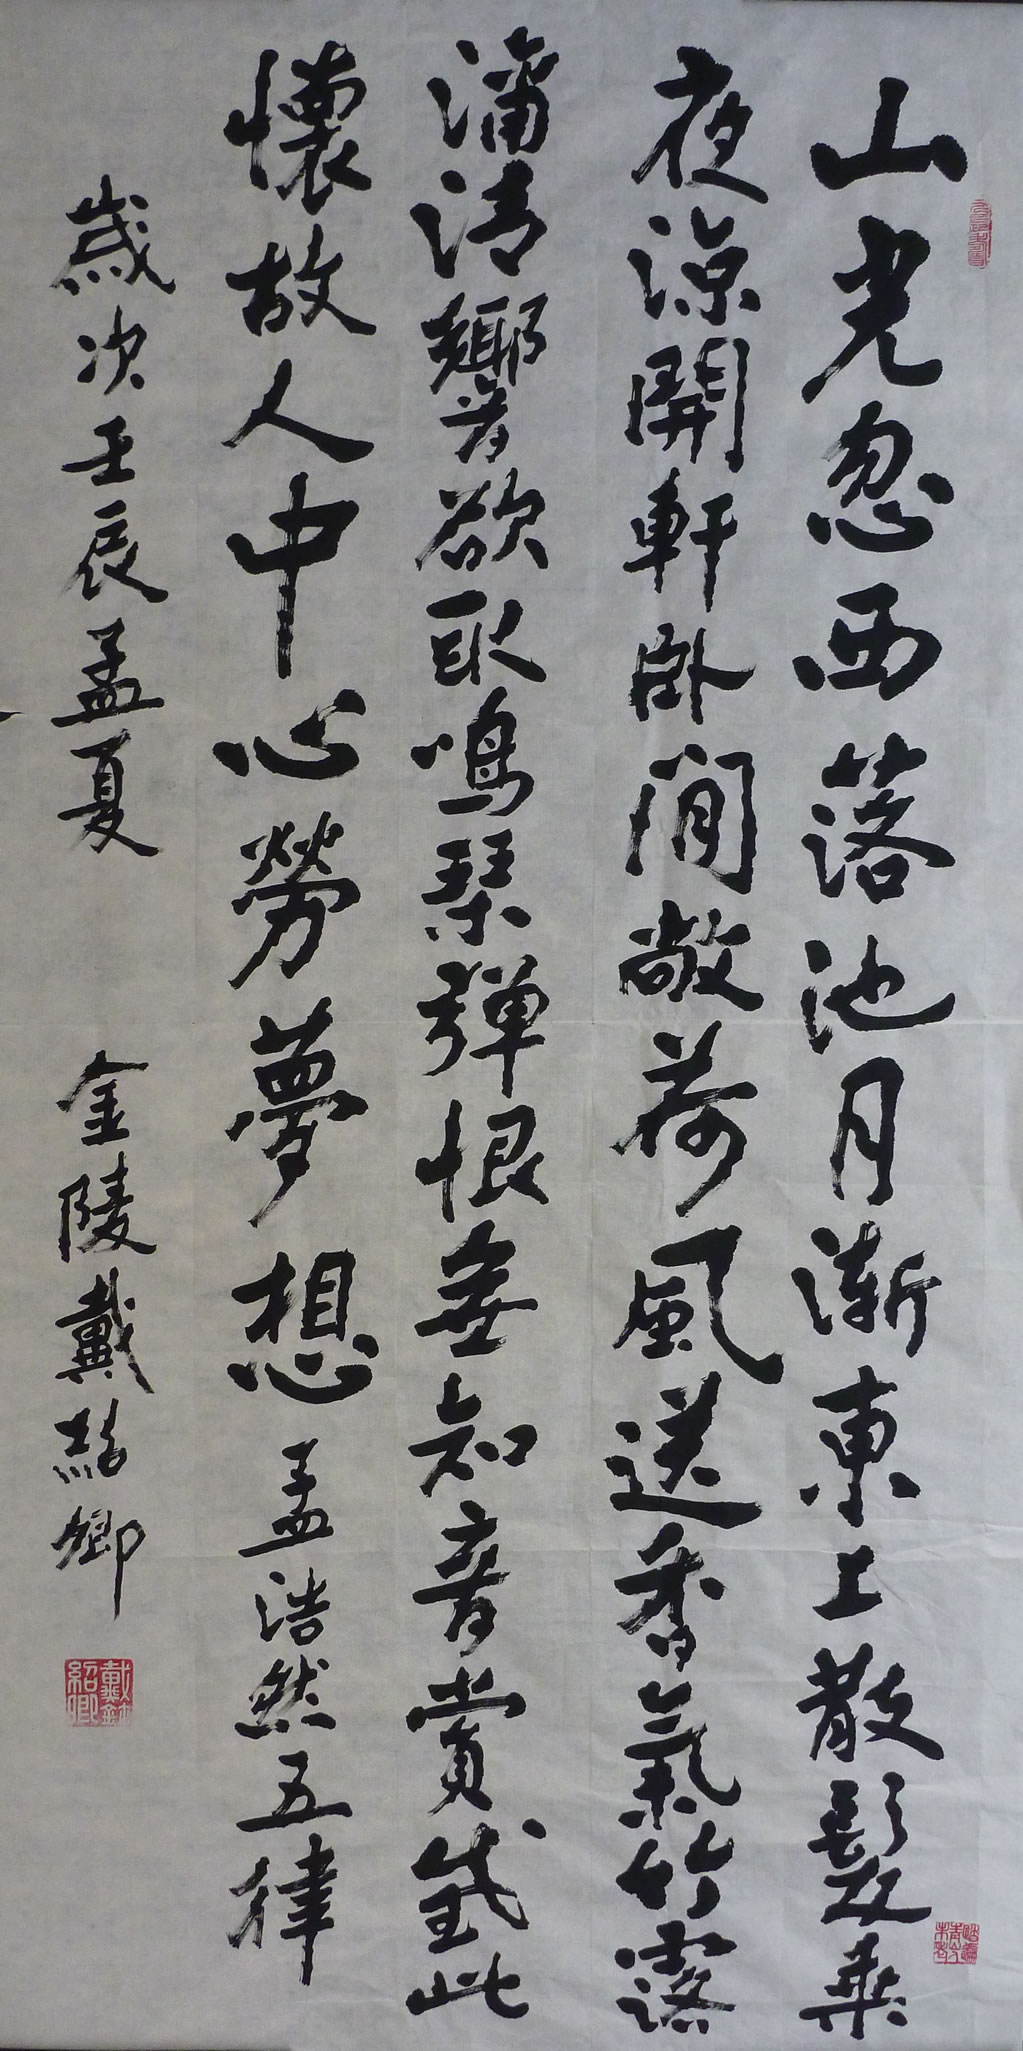 山光忽西落池月漸東上散髮乘
夜涼開軒卧閒敞荷風送香氣竹露
滴清響欲取鳴琴彈恨無知音賞感此
懷故人中心勞夢想 孟浩然五律
歲次壬辰孟夏 金陵戴紹卿
戴紹卿